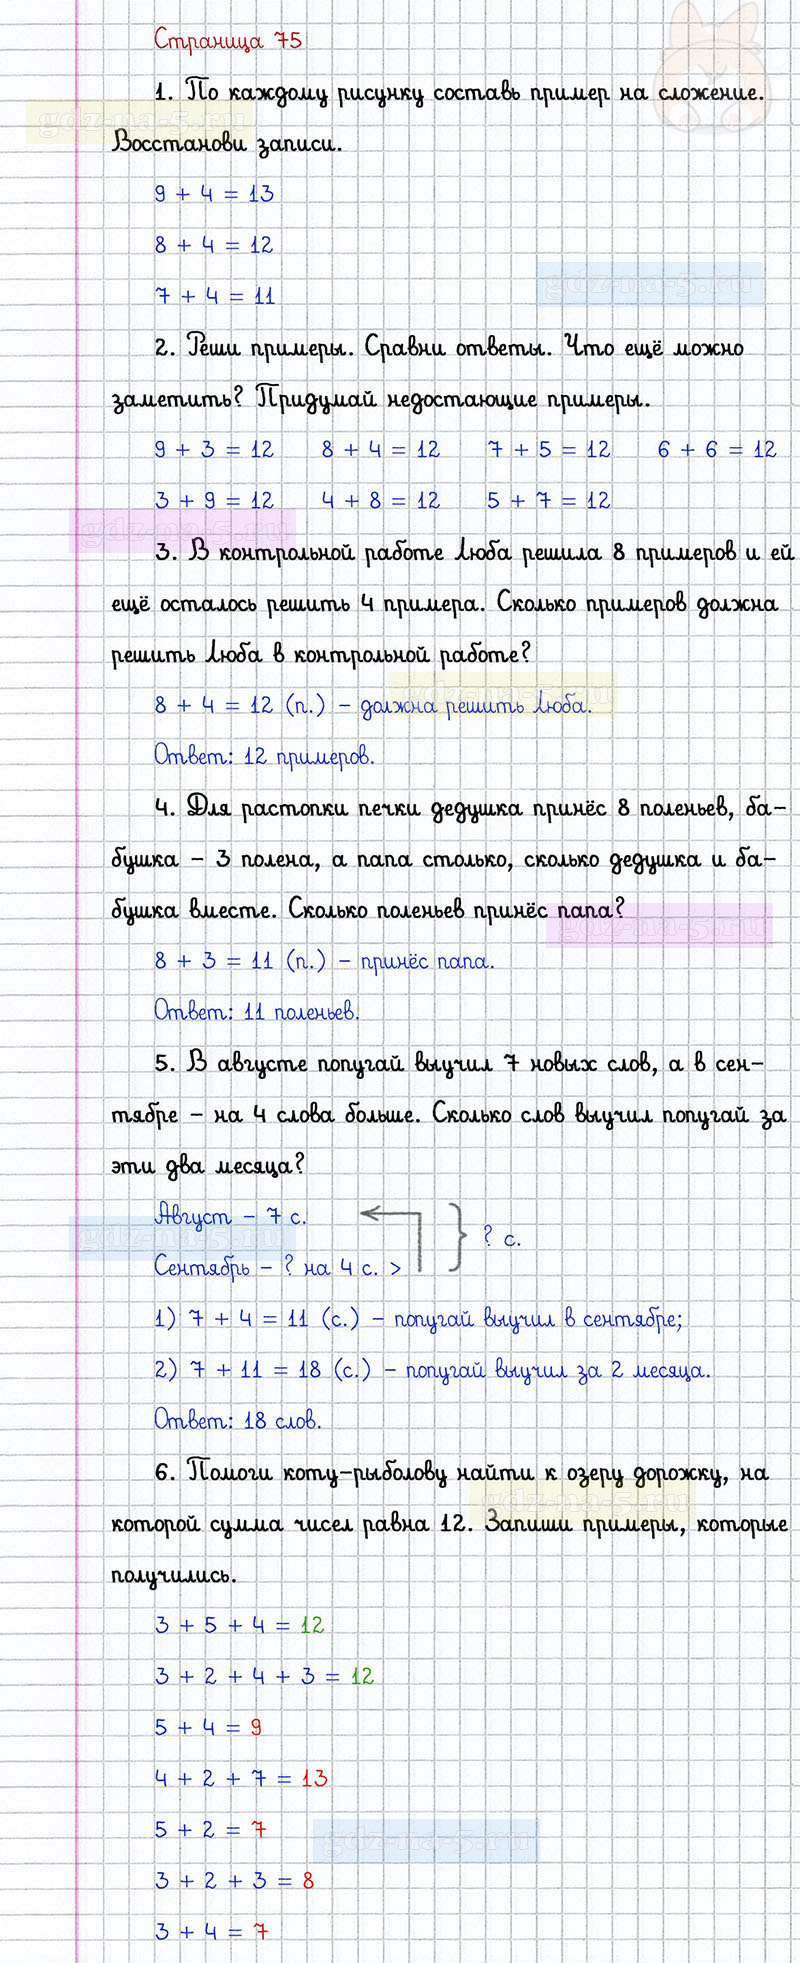 Страница 75
1. По каждому рисунку составь пример на сложение.
gdz-na-5.ru
Восстанови записи.
9 + 4 = 13
8 + 4 = 12
gdz-na-5.ru
7 + 4 = 11
2. Реши примеры. Сравни ответы. Что ещё можно
заметить? Придумай недостающие примеры.
9 + 3 = 12 8 + 4 = 12 7 + 5 = 12 6 + 6 = 12
3 + 9 = 12 4 + 8 = 12 5 + 7 = 12
gdz-na-5.ru
3. В контрольной работе Люба решила 8 примеров и ей
ещё осталось решить 4 примера. Сколько примеров должна
решить Люба в контрольной работе?
gdz-na-5.ru
8 + 4 = 12 (п.) – должна решить Люба.
Ответ: 12 примеров.
4. Для растопки печки дедушка принёс 8 поленьев, ба-
бушка – 3 полена, а папа столько, сколько дедушка и ба-
бушка вместе. Сколько поленьев принёс папа?
gdz-na-5.ru
8 + 3 = 11 (п.) – принёс папа.
Ответ: 11 поленьев.
5. В августе попугай выучил 7 новых слов, а в сен-
тябре – на 4 слова больше. Сколько слов выучил попугай за
эти два месяца?
Август – 7 с.
? с.
gdz-na-5.ru
Сентябрь – ? на 4 с. >
1) 7 + 4 = 11 (с.) – попугай выучил в сентябре;
2) 7 + 11 = 18 (с.) – попугай выучил за 2 месяца.
Ответ: 18 слов.
6. Помоги коту-рыболову найти к озеру дорожку, на
gdz-na-5.ru
которой сумма чисел равна 12. Запиши примеры, которые
получились.
3 + 5 + 4 = 12
3 + 2 + 4 + 3 = 12
5 + 4 = 9
4 + 2 + 7 = 13
5 + 2 = 7
gdz-na-5.ru
3 + 2 + 3 = 8
3 + 4 = 7